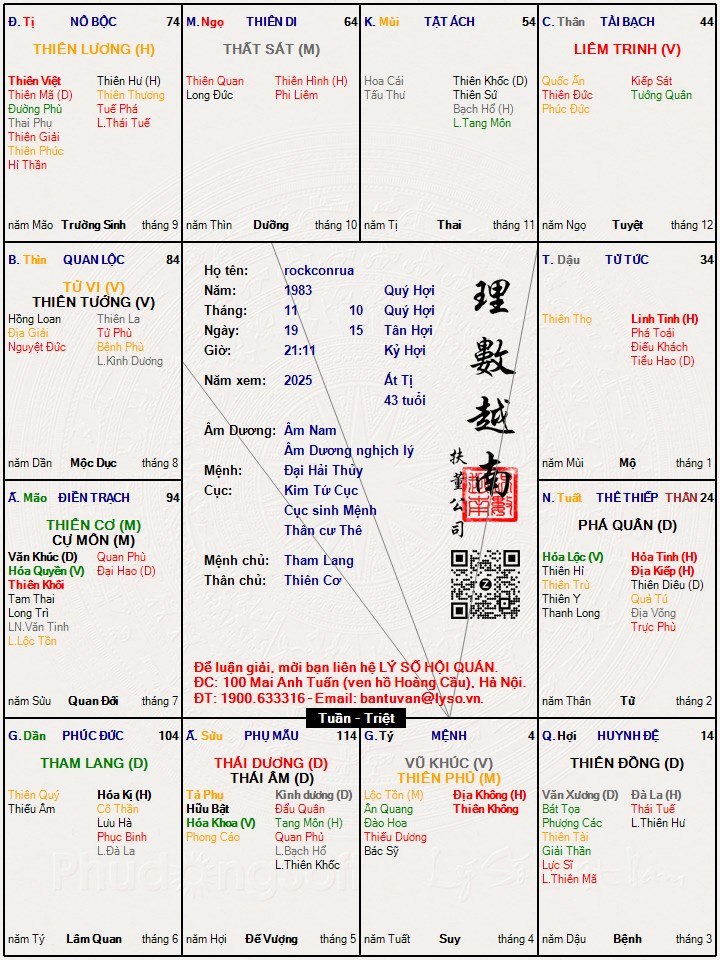 Đ. Tị NÔ BỘC 74
THIÊN LƯƠNG (H)
Thiên Việt
Thiên Mã (D)
Đường Phù
Thai Phụ
Thiên Giải
Thiên Phúc
Hỉ Thần
Thiên Hư (H)
Thiên Thương
Tuế Phá
L.Thái Tuế
năm Mão Trường Sinh tháng 9
M. Ngọ THIÊN DI 64
THẤT SÁT (M)
Thiên Quan
Long Đức
Thiên Hình (H)
Phi Liêm
năm Thìn Dưỡng tháng 10
K. Mùi TẬT ÁCH 54
Hoa Cái
Tấu Thư
Thiên Khốc (D)
Thiên Sứ
Bạch Hổ (H)
L.Tang Môn
năm Tị Thai tháng 11
C. Thân TÀI BẠCH 44
LIÊM TRINH (V)
Quốc Ấn
Thiên Đức
Phúc Đức
Kiếp Sát
Tướng Quân
năm Ngọ Tuyệt tháng 12
B. Thìn QUAN LỘC 84
TỬ VI (V)
THIÊN TƯỚNG (V)
Hồng Loan
Địa Giải
Nguyệt Đức
Thiên La
Tử Phù
Bệnh Phù
L.Kình Dương
năm Dần Mộc Dục tháng 8
Họ tên: rockconrua
Năm: 1983 Quý Hợi
Tháng: 11 10 Quý Hợi
Ngày: 19 15 Tân Hợi
Giờ: 21:11 Kỷ Hợi
Năm xem: 2025 Ất Tị
43 tuổi
Âm Dương: Âm Nam
Âm Dương nghịch lý
Mệnh: Đại Hải Thủy
Cục: Kim Tứ Cục
Cục sinh Mệnh
Thân cư Thê
Mệnh chủ: Tham Lang
Thân chủ: Thiên Cơ
理數越南
扶董公司
Z
Để luận giải, mời bạn liên hệ LÝ SỐ HỘI QUÁN.
ĐC: 100 Mai Anh Tuấn (ven hồ Hoàng Cầu), Hà Nội.
ĐT: 1900.633316 - Email: bantuvan@lyso.vn.
Tuần - Triệt
T. Dậu TỬ TỨC 34
Thiên Thọ
Linh Tinh (H)
Phá Toái
Điếu Khách
Tiểu Hao (D)
năm Mùi Mộ tháng 1
Ấ. Mão ĐIỀN TRẠCH 94
THIÊN CƠ (M)
CỰ MÔN (M)
Văn Khúc (D)
Hóa Quyền (V)
Thiên Khôi
Tam Thai
Long Trì
LN.Văn Tinh
L.Lộc Tồn
Quan Phù
Đại Hao (D)
năm Sửu Quan Đới tháng 7
N. Tuất THÊ THIẾP THÂN 24
PHÁ QUÂN (D)
Hóa Lộc (V)
Thiên Hỉ
Thiên Trù
Thiên Y
Thanh Long
Hỏa Tinh (H)
Địa Kiếp (H)
Thiên Diêu (D)
Quả Tú
Địa Võng
Trực Phù
năm Thân Tử tháng 2
G. Dần PHÚC ĐỨC 104
THAM LANG (D)
Thiên Quý
Thiếu Âm
Hóa Kị (H)
Cô Thần
Lưu Hà
Phục Binh
L.Đà La
năm Tý Lâm Quan tháng 6
Ấ. Sửu PHỤ MẪU 114
THÁI DƯƠNG (D)
THÁI ÂM (D)
Tả Phụ
Hữu Bật
Hóa Khoa (V)
Phong Cáo
Kình dương (D)
Đẩu Quân
Tang Môn (H)
Quan Phủ
L.Bạch Hổ
L.Thiên Khốc
năm Hợi Đế Vượng tháng 5
G. Tý MỆNH 4
VŨ KHÚC (V)
THIÊN PHỦ (M)
Lộc Tồn (M)
Ân Quang
Đào Hoa
Thiếu Dương
Bác Sỹ
Địa Không (H)
Thiên Không
năm Tuất Suy tháng 4
Q. Hợi HUYNH ĐỆ 14
THIÊN ĐỒNG (D)
Văn Xương (D)
Bát Tọa
Phượng Các
Thiên Tài
Giải Thần
Lực Sĩ
L.Thiên Mã
Đà La (H)
Thái Tuế
L.Thiên Hư
năm Dậu Bệnh tháng 3